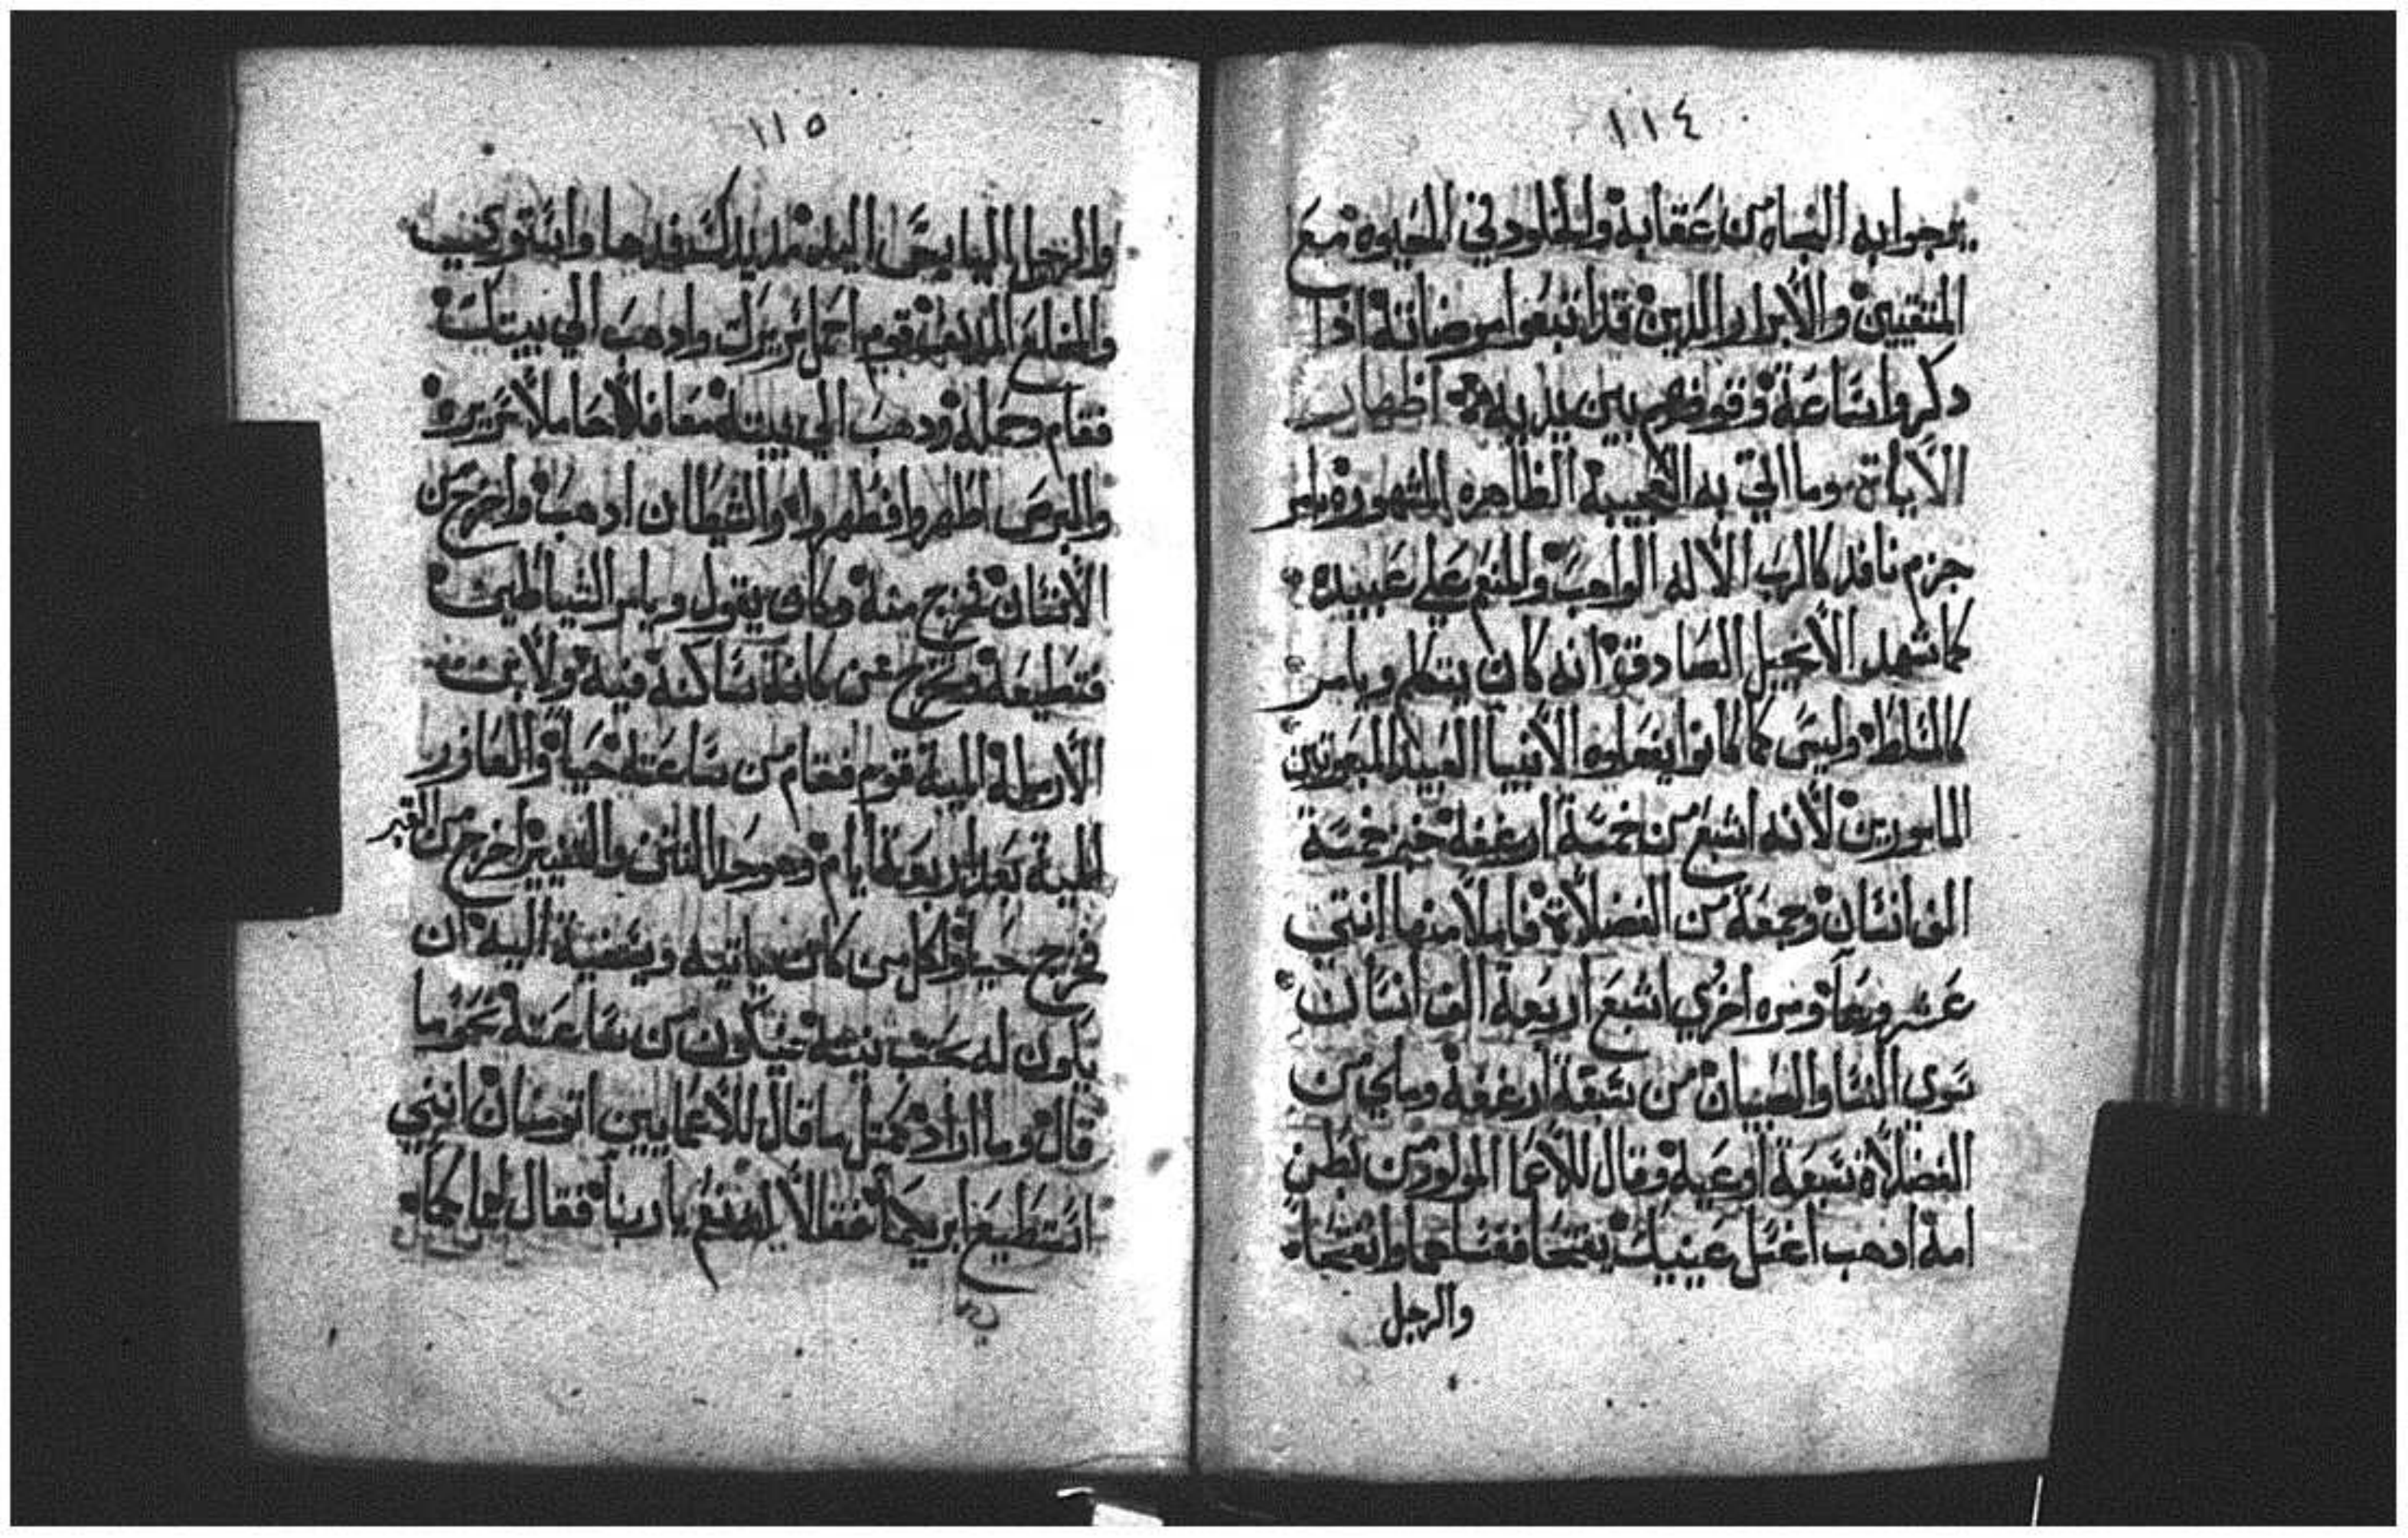 ١١٤
يرجوا به النجاه من عقابه والخلود في الحيوه مع
المتقيين والأبرار والدين قد اتبعوا مرضاته ادا
دكروا ساعة وقوفهم بين يديه اظهار
الأيات وما اتي به العجيبة الظاهره المشهوره بامر
جزم نافد كالرب الأله الواهب والمنعم علي عبيده
كما شهد الأنجيل الصادق انه كان يتكلم ويامر
كالمتسلط وليس كما كانوا يفعلوه الأنبيا العبيد المبعوتين
المامورين لأنه اشبع من خمسة ارغفة خبز خمسة
الف انسان وجمعة من الفضلاة فاملا منها انتي
عشر وعا ومره اخري اشبع اربعة الف انسان
سوي النسا والصبيان من سبعة ارغفة وملي من
الفضلاة سبعة اوعية وقال للأعما المولود من بطن
امه ادهب اغسل عينيك يفتحا فغسلهما وانفتحا
والرجل
١١٥
والرجل اليابس اليد مد يدك فمدها واستوت
والمخلع المقعد قوم احمل سريرك وادهب الي بيتك
فقام حمله ودهب الي بيته معافا حاملا سريره
والبرص اطهروا فطهروا والشيطان ادهب واخرج من
الأنسان فخرج منه وكان يقول ويامر الشياطين
فتطيعة وتخرج عن كانة ساكنة فيه ولأبن
الأرملة الميت قوم فقام من ساعته حيا والعازر
الميت بعد اربعة ايام وهو حد النتن والتغيير اخرج من القبر
فخرج حيا ولكل من كان ياتيه ويشفيه اليه ان
يكون له بحسب نيته فيكون من ساعته نحو ما
قال وما اراد كمتل ما قال للأعمايين اتومنان انني
استطيع ابريكما فقالأ له نعم يا ربنا فقال لهما كما